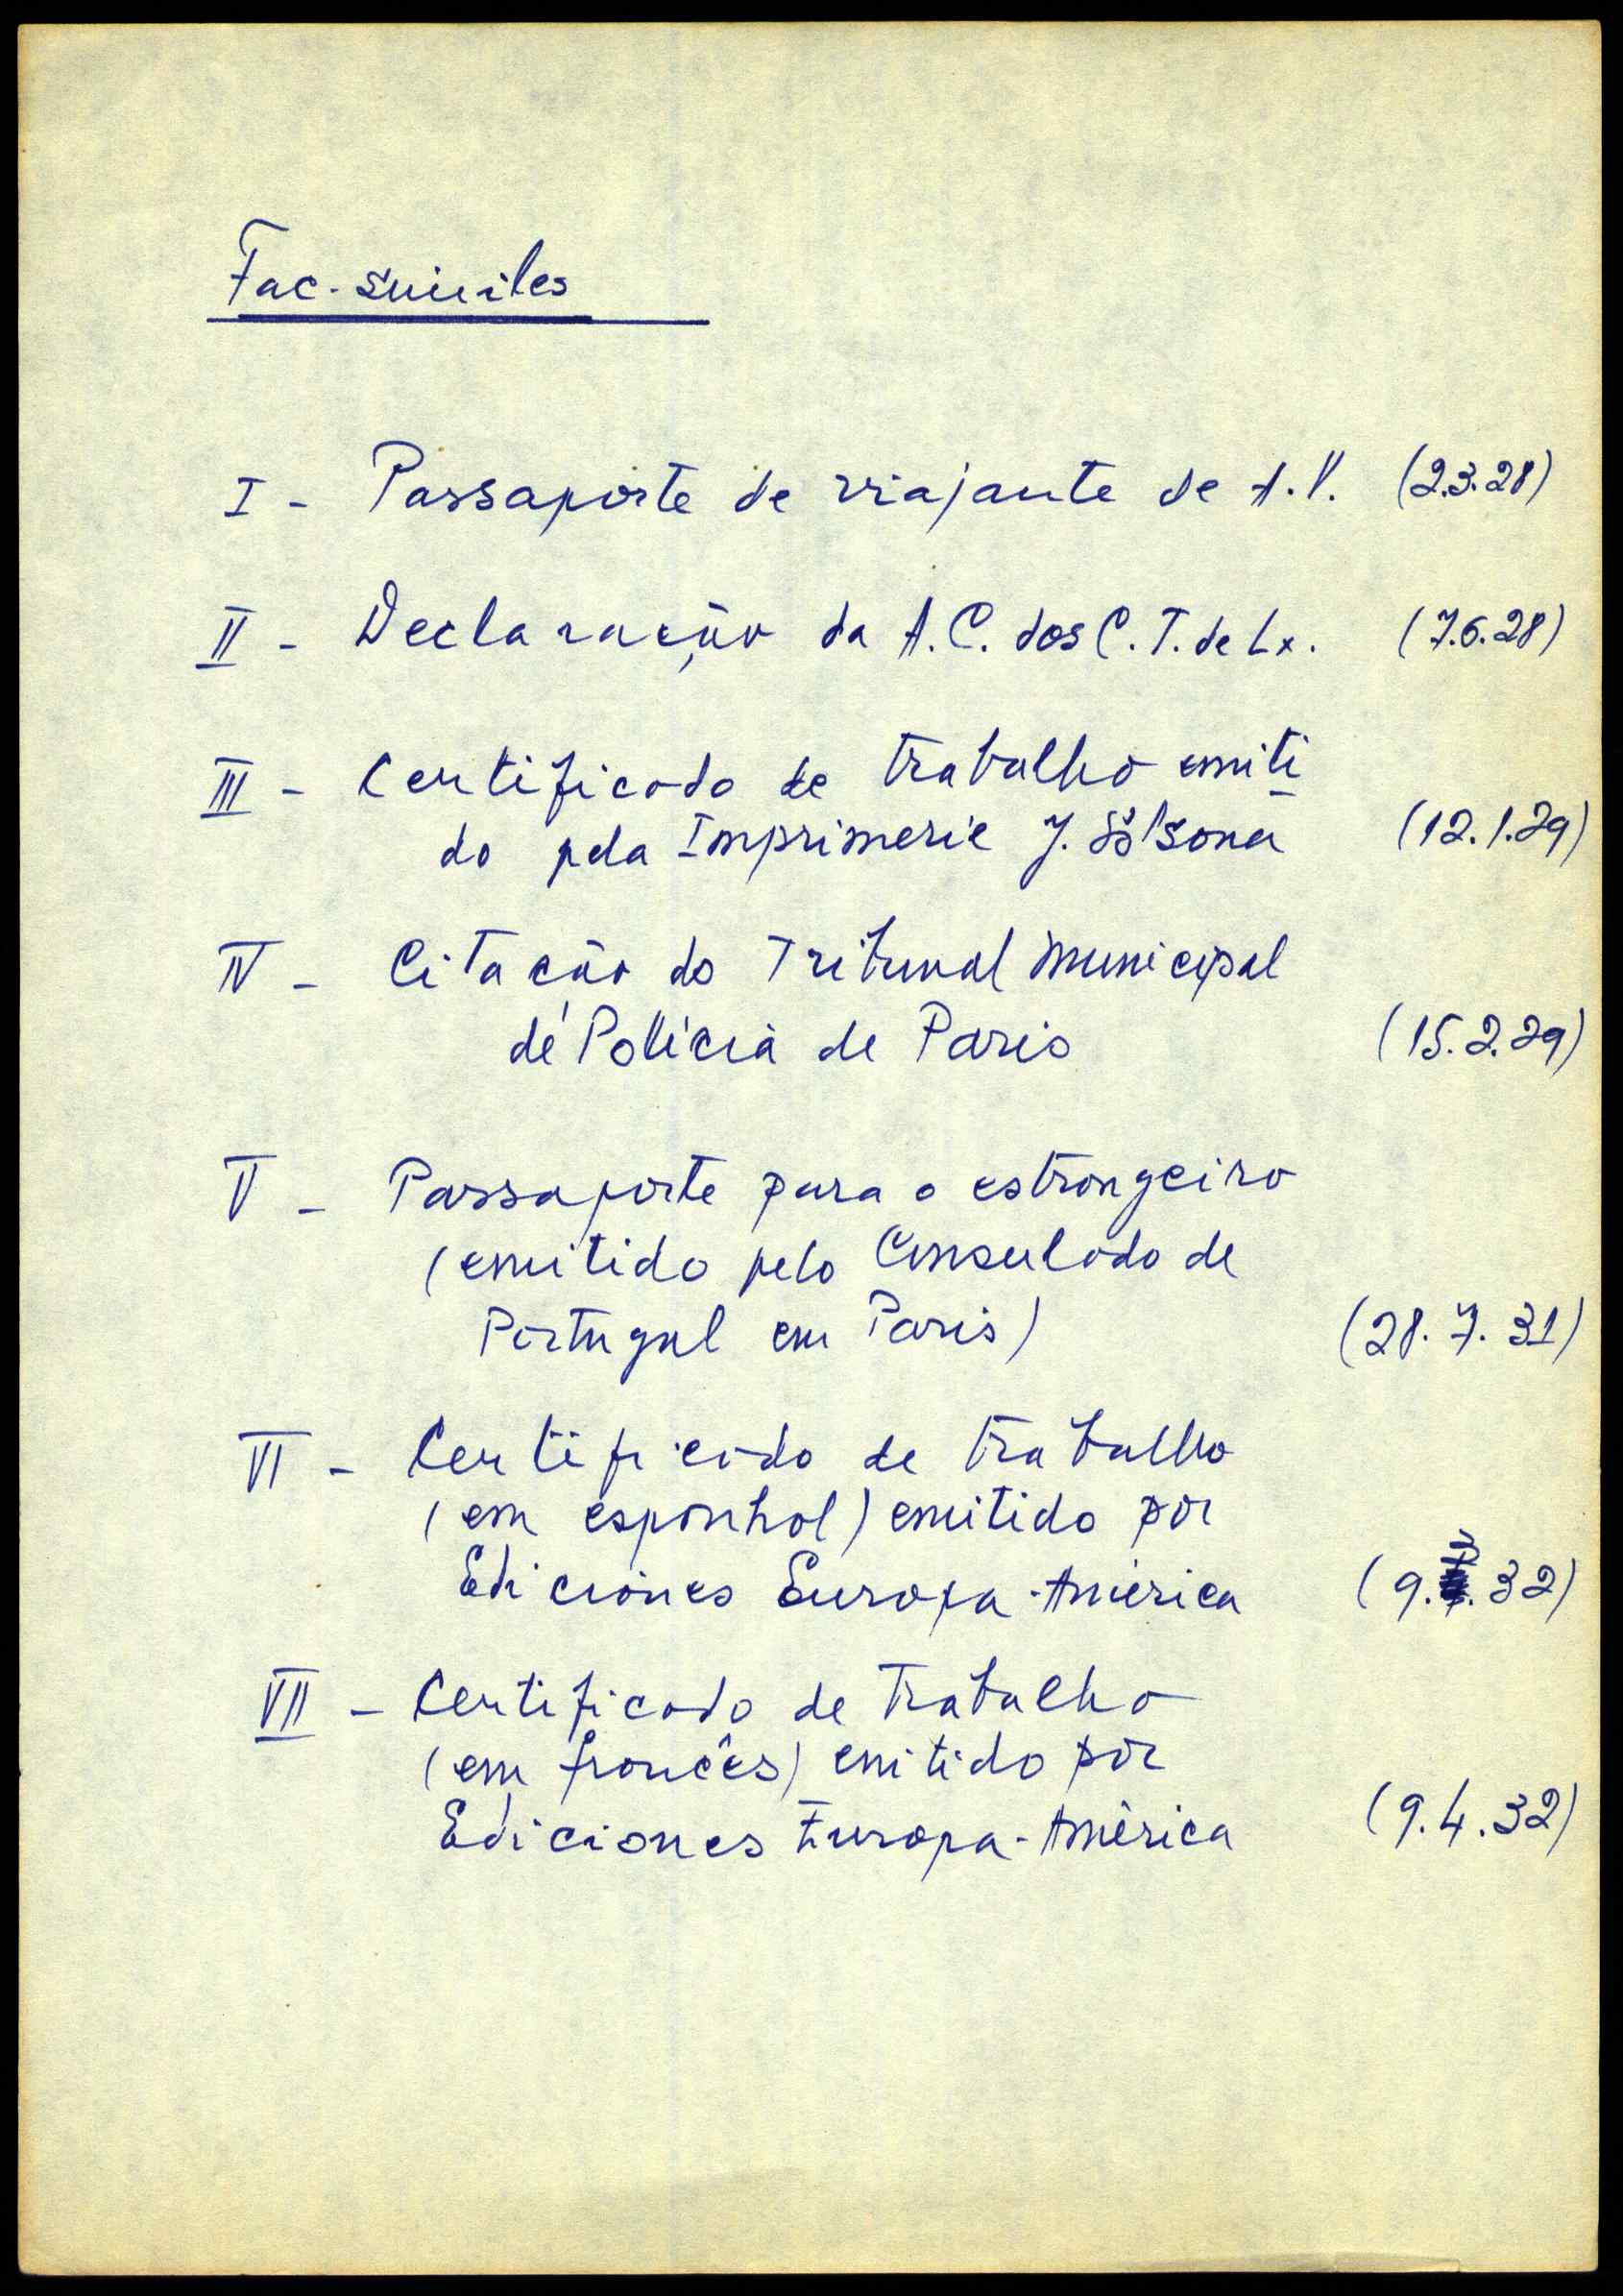 Fac-similes
I - Passaporte de viajante de A.V. (2.3.28)
II - Declaração da A.C. dos C.T. de Lx. (7.6.28)
III - Certificado de trabalho emiti
do pela Imprimerie J. Solsona (12.1.29)
IV - Citação do Tribunal Municipal
de Polícia de Paris (15.2.29)
V - Passaporte para o estrangeiro
(emitido pelo Consulado de
Portugal em Paris) (28.7.31)
VI - Certificado de trabalho
(em espanhol) emitido por
Ediciones Europa-América (9.3.32)
VII - Certificado de trabalho
(em francês) emitido por
Ediciones Europa-América (9.4.32)